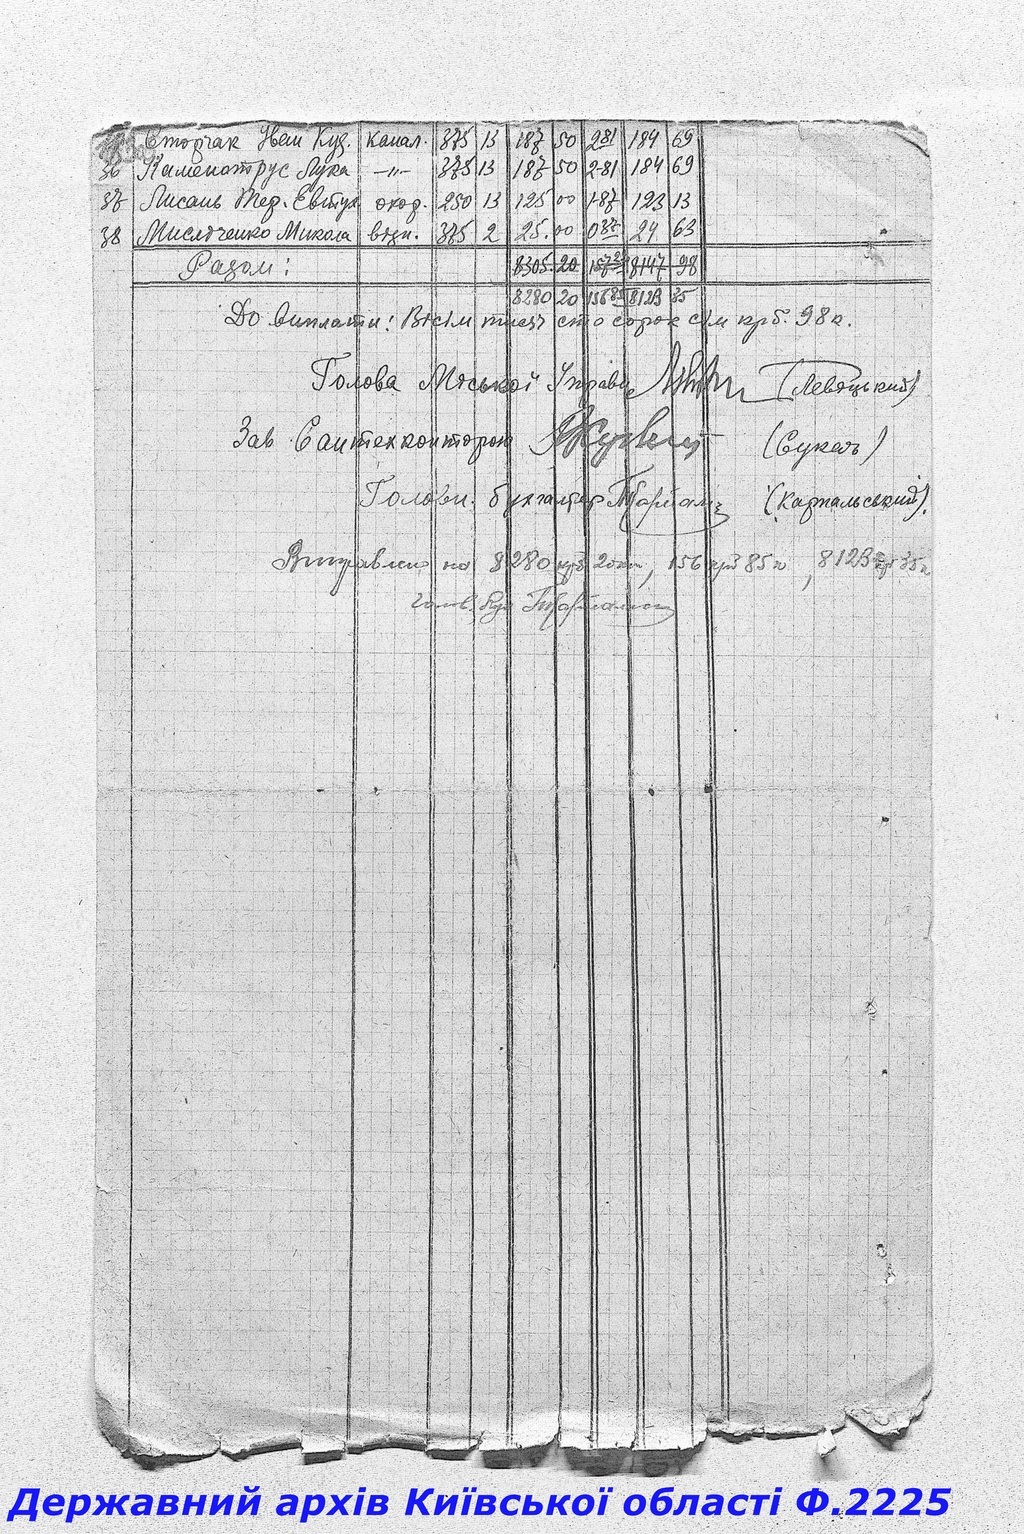 Сторчак Івем Куз. канал. 375 13 187 50 2 81 184 69
36 Каменотрус Лука —"— 375 13 187 50 2-81 184 69
37 Лисань Тед. Евтух охор. 250 13 125 00 1-87 123 13
38 Миколо візн. 375 2 25.00 0 37 24 63
Разом: 8305-20 157 22 8147-98
8280 20 156 85 8123 35
До виплати: Вісім тисяч сто сорок сім крб. 98 к.
Голова Міської Управи (Левицький)
Зав. Сантехконторою (Сукач)
Головн. бухгалтер (Карпальський).
Виправлено на 8280 крб 20 коп, 156 крб 85 к, 8123 кр 35 к
голв. бух
Державний архів Київської області Ф.2225